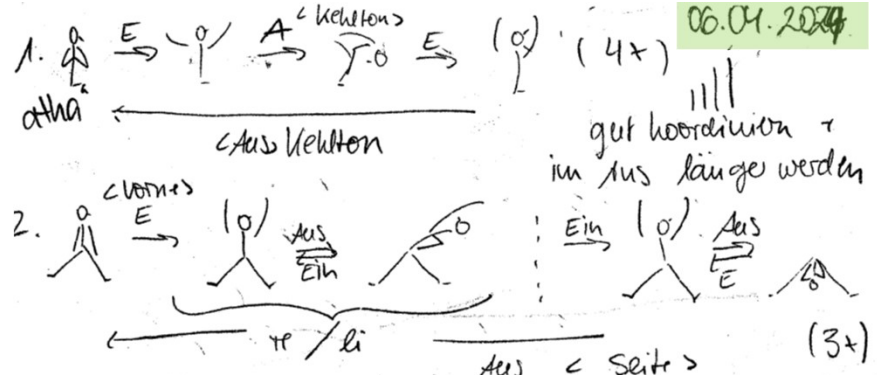 06.04.2024
1. E A <Kehlton> E (4x)
atha"
<Aus> Kehlton
gut koordinieren +
im Aus länger werden
2. <vorne> E Aus Ein Ein Aus E
re/li (3x)
Aus <Seite>